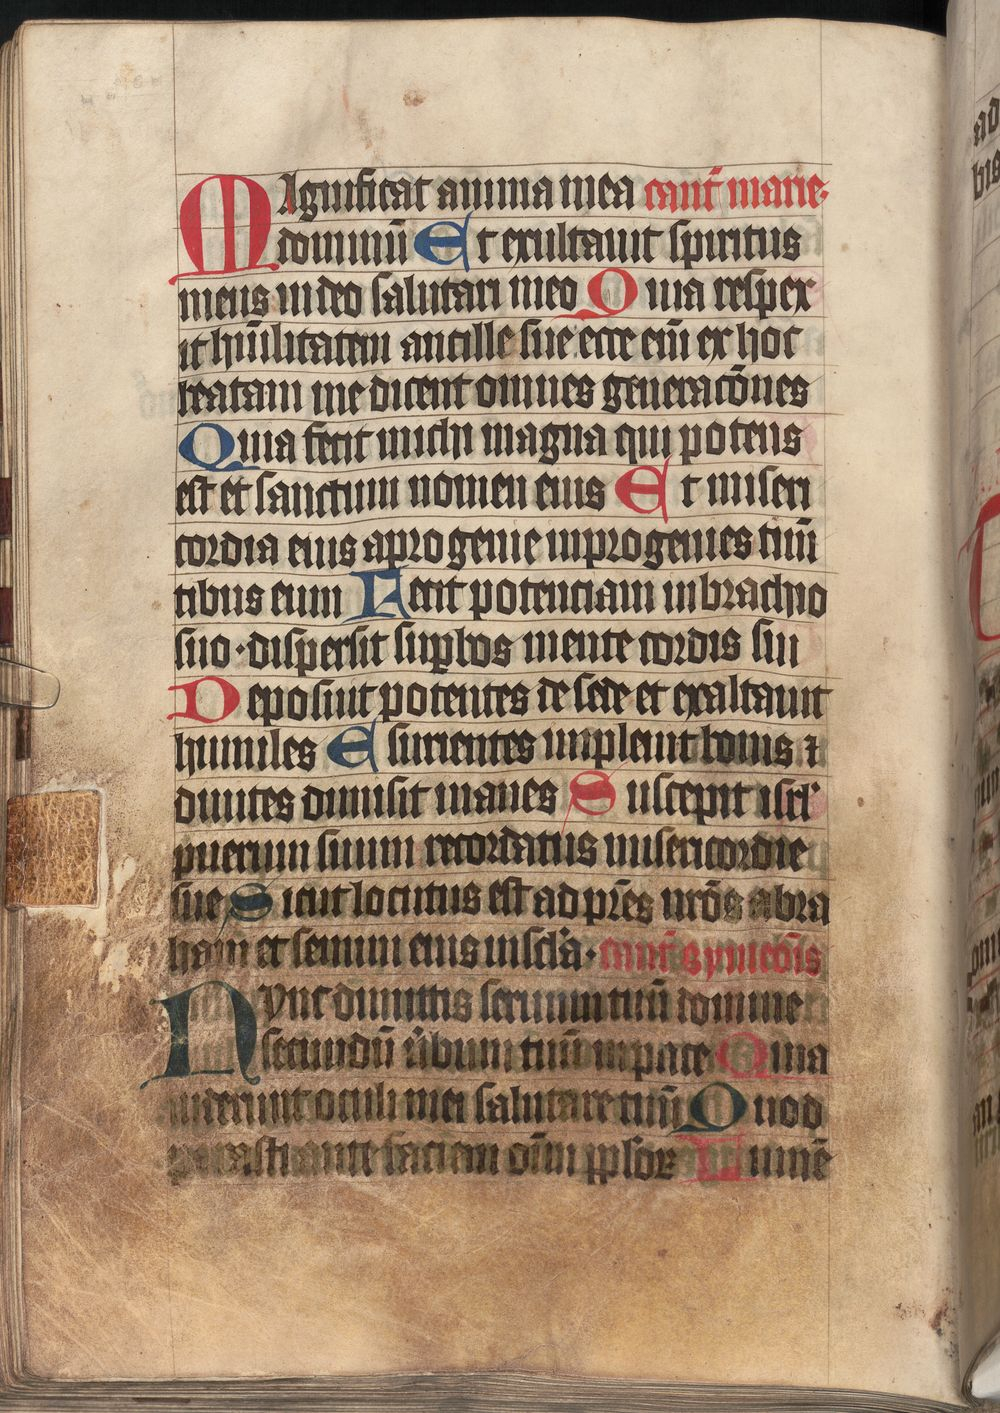 MAgnificat anima mea cant̄ marie·
dominū Et exultauit spiritus
meus in deo salutari meo Quia respex
it hūilitatem ancille sue ecce em̄ ex hoc
beatam me dicent omnes generacōnes
Quia fecit michi magna qui potens
est et sanctum nomen eius Et miseri
cordia eius aprogenie inprogenies timē
tibus eum Fecit potenciam inbrachio
suo·dispersit suꝑbos mente cordis sui
Deposuit potentes de sede et exaltauit
humiles Esurientes impleuit bonis ⁊
diuites dimisit inanes Suscepit isrl'
puerum suum recordatus misericordie
sue Sicut locutus est ad pr̄es nr̄os abra
ham et semini eius insclā· cant̄ symeōis
NVnc dimittis seruum tuū domine
secundū ūbum tuū in pace Quia
uiderunt oculi mei salutare tuū Quod
parasti ante faciem oīm ppl'oꝝ Lumē
ad
bis